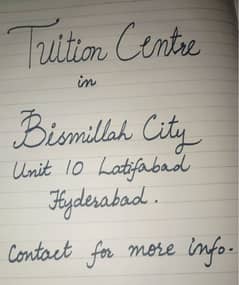 Tuition Centre
in
Bismillah City
Unit 10 Latifabad
Hyderabad.
Contact for more info.